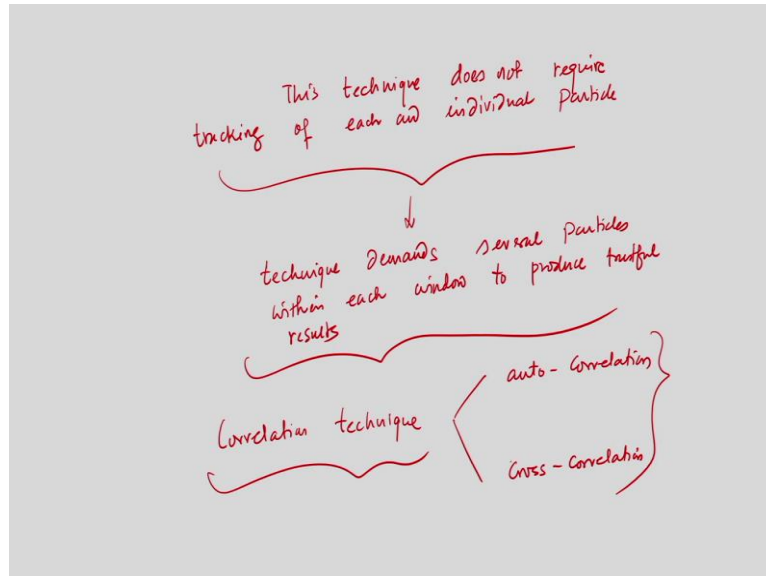 This technique does not require
tracking of each and individual particle
technique demands several particles
within each window to produce trustful
results
Correlation technique
auto - correlation
Cross - correlation